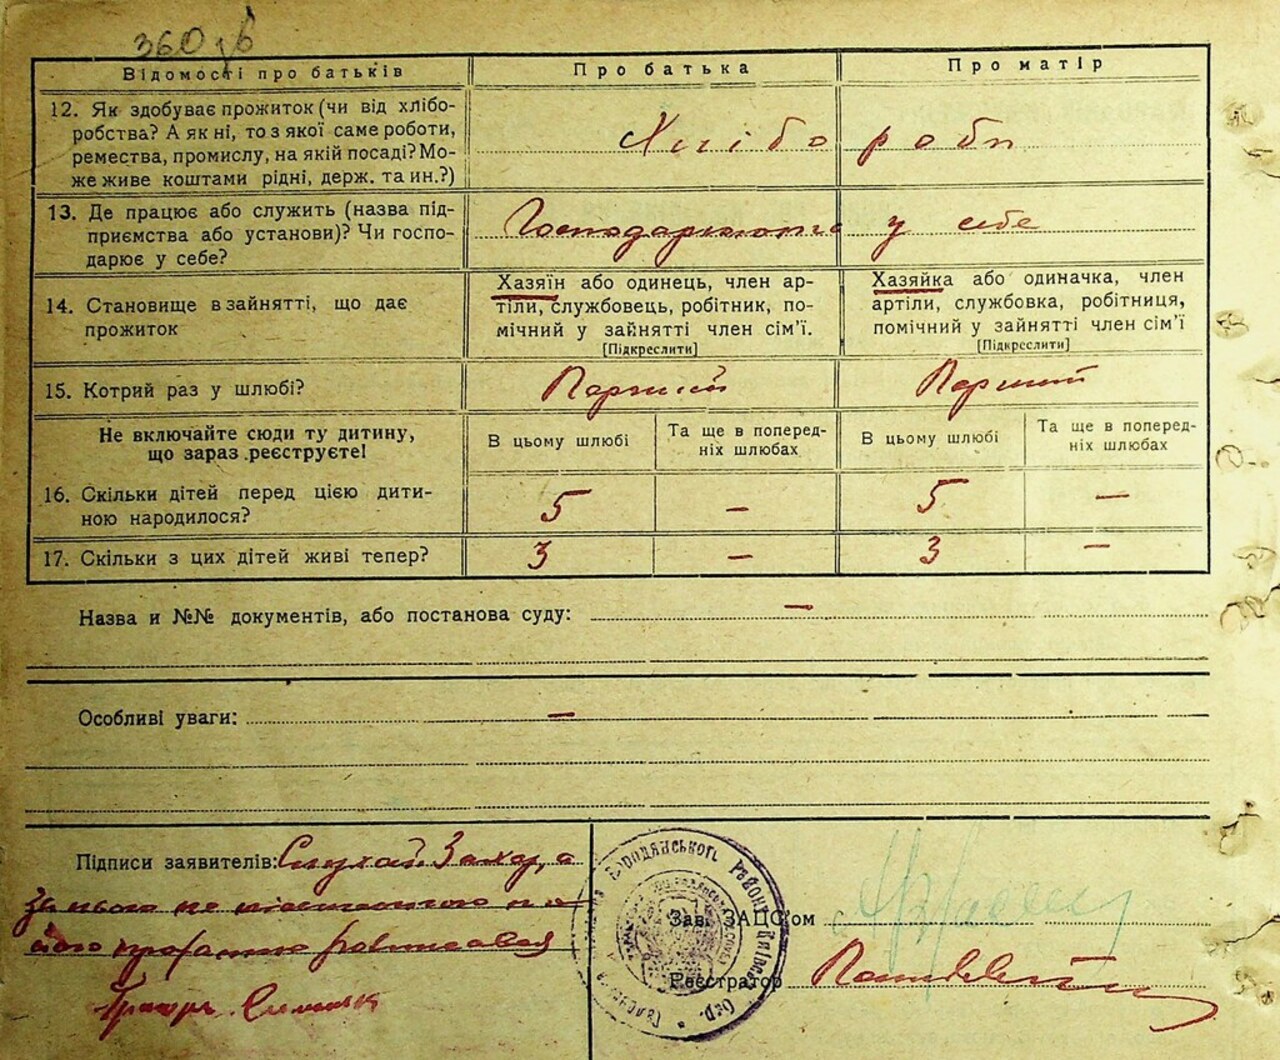 360 зв
Відомості про батьків
Про батька
Про матір
12. Як здобуває прожиток (чи від хлібо-
робства? А як ні, то з якої саме роботи,
ремества, промислу, на якій посаді? Мо-
же живе коштами рідні, держ. та ин.?)
Хлібороби
13. Де працює або служить (назва під-
приємства або установи)? Чи госпо-
дарює у себе?
Господарюють у себе
14. Становище в зайнятті, що дає
прожиток
Хазяїн або одинець, член ар-
тіли, службовець, робітник, по-
мічний у зайнятті член сім'ї.
[Підкреслити]
Хазяйка або одиначка, член
артіли, службовка, робітниця,
помічний у зайнятті член сім'ї
[Підкреслити]
15. Котрий раз у шлюбі?
Перший
Перший
Не включайте сюди ту дитину,
що зараз реєструєте!
В цьому шлюбі
Та ще в поперед-
ніх шлюбах
В цьому шлюбі
Та ще в поперед-
ніх шлюбах
16. Скільки дітей перед цією дити-
ною народилося?
5
—
5
—
17. Скільки з цих дітей живі тепер?
3
—
3
—
Назва и №№ документів, або постанова суду: —
Особливі уваги: —
Підписи заявителів: Слухай Захар, а
за нього не письменного по
його проханню росписався
Зав. ЗАЦС'ом
Реєстратор
Бородянського району Київськ